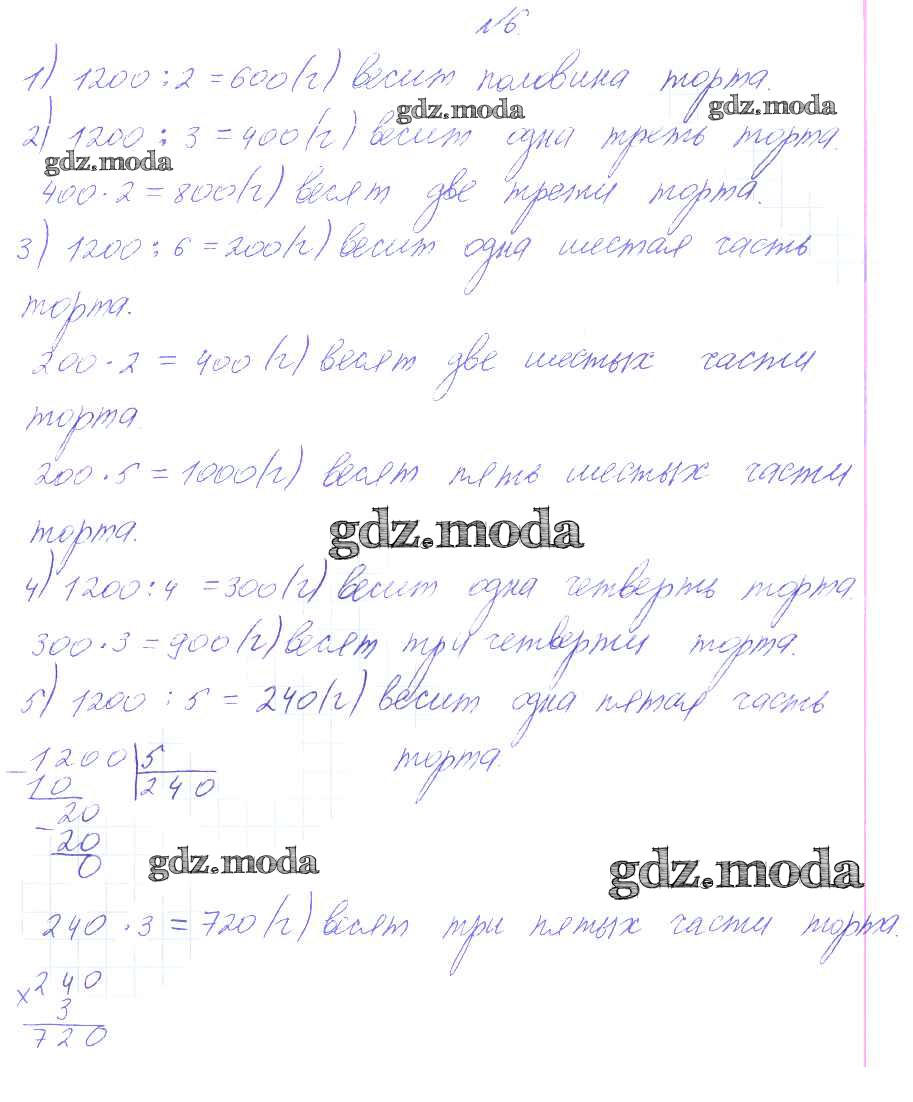 №6.
1) 1200 : 2 = 600 (г) весит половина торта.
gdz.moda gdz.moda
2) 1200 : 3 = 400 (г) весит одна треть торта.
gdz.moda
400 · 2 = 800 (г) весят две трети торта.
3) 1200 : 6 = 200 (г) весит одна шестая часть
торта.
200 · 2 = 400 (г) весят две шестых части
торта.
200 · 5 = 1000 (г) весят пять шестых части
торта.
gdz.moda
4) 1200 : 4 = 300 (г) весит одна четверть торта.
300 · 3 = 900 (г) весят три четверти торта.
5) 1200 : 5 = 240 (г) весит одна пятая часть
торта.
– 1200 | 5
10 | 240
– 20
20
0
gdz.moda gdz.moda
240 · 3 = 720 (г) весят три пятых части торта.
× 240
3
720